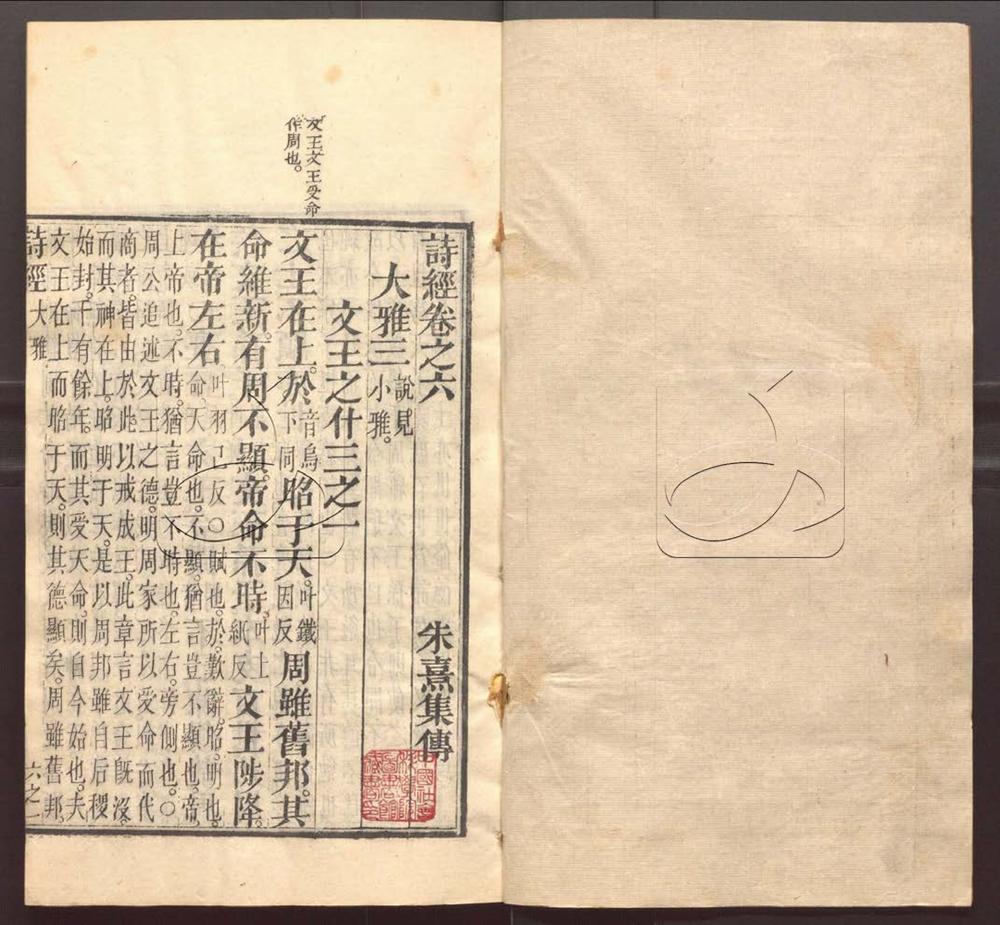 文王文王受命
作周也。
詩經卷之六
朱熹集傳
大雅三
說見
小雅。
文王之什三之一
文王在上。於音烏下同昭于天。叶鐵因反周雖舊邦。其
命維新。有周不顯。帝命不時。叶上紙反文王陟降。
在帝左右叶羽己反○賦也。於。歎辭。昭。明也。
命。天命也。不顯。猶言豈不顯也。帝。
上帝也。不時。猶言豈不時也。左右。旁側也。○
周公追述文王之德。明周家所以受命而代
商者。皆由於此。以戒成王。此章言文王旣沒。
而其神在上。昭明于天。是以周邦雖自后稷
始封。千有餘年。而其受天命。則自今始也。夫
文王在上而昭于天。則其德顯矣。周雖舊邦。
詩經
大雅
六之一